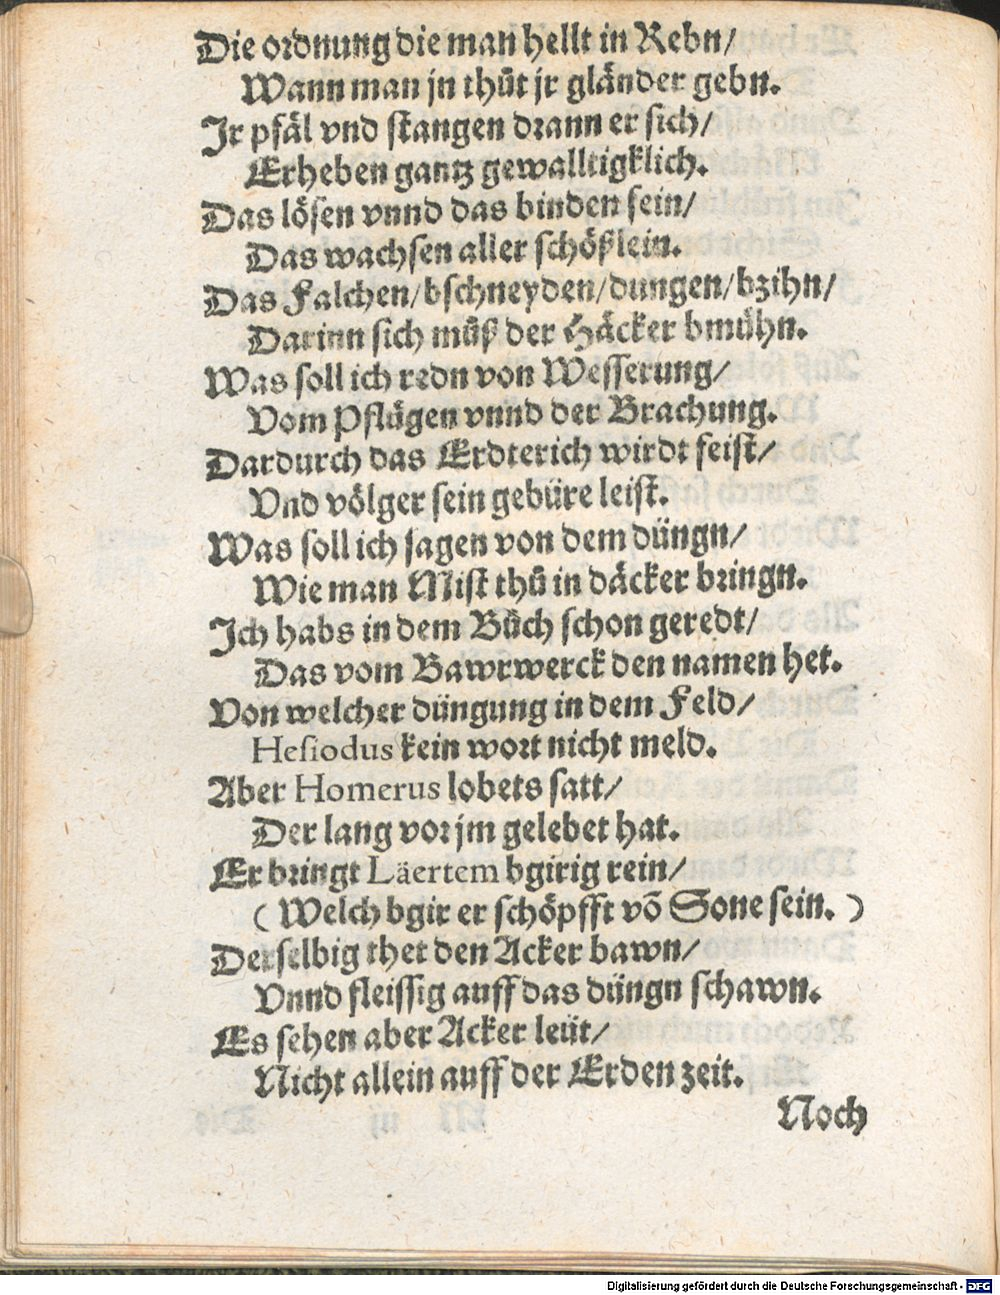 Die ordnung die man hellt in Rebn/
Wann man jn thůt jr gländer gebn.
Jr pfäl vnd stangen drann er sich/
Erheben gantz gewalltigklich.
Das lösen vnnd das binden sein/
Das wachsen aller schößlein.
Das Falchen/bschneyden/dungen/bzihn/
Darinn sich můß der Häcker bmühn.
Was soll ich redn von Wesserung/
Vom Pflügen vnnd der Brachung.
Dardurch das Erdterich wirdt feist/
Vnd völger sein gebüre leist.
Was soll ich sagen von dem düngn/
Wie man Mist thů in däcker bringn.
Jch habs in dem Bůch schon geredt/
Das vom Bawrwerck den namen het.
Von welcher düngung in dem Feld/
Hesiodus kein wort nicht meld.
Aber Homerus lobets satt/
Der lang vor jm gelebet hat.
Er bringt Läertem bgirig rein/
( Welch bgir er schöpfft võ Sone sein. )
Derselbig thet den Acker bawn/
Vnnd fleissig auff das düngn schawn.
Es sehen aber Acker leüt/
Nicht allein auff der Erden zeit.
Noch
Digitalisierung gefördert durch die Deutsche Forschungsgemeinschaft - DFG